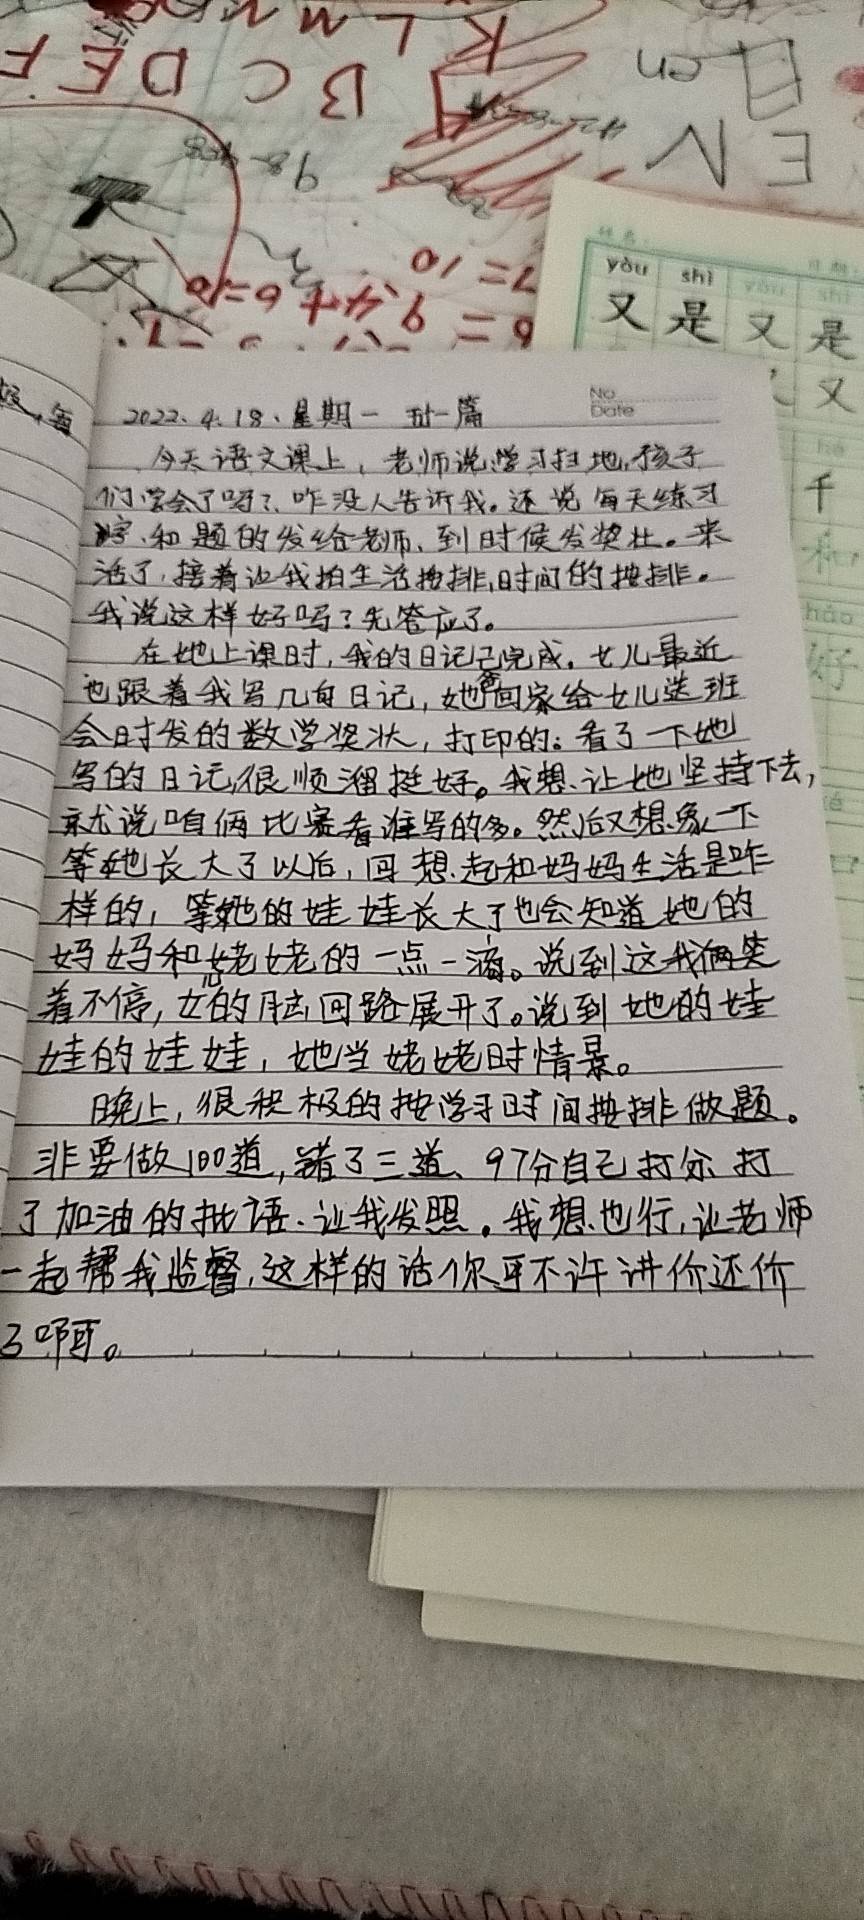 K L M N
A B C D E F
目 cm
E N
9 8
7 = 10
9. 4 + 6 = 10
yòu shì yòu shì
又 是 又 是
又
千
和
hǎo
好
No
Date
2022.4.18.星期一 五十一篇
今天语文课上，老师说学习扫地，孩子
们学会了吗？咋没人告诉我。还说每天练习
字、和题的发给老师、到时候发奖壮。来
活了，接着让我拍生活按排，时间的按排。
我说这样好吗？先答应了。
在她上课时，我的日记已完成，女儿最近
也跟着我写几句日记，她爸回家给女儿送班
会时发的数学奖状，打印的。看了一下她
写的日记，很顺溜挺好。我想让她坚持下去，
就说咱俩比赛看谁写的多。然后又想象一下
等她长大了以后，回想起和妈妈生活是咋
样的，等她的娃娃长大了也会知道她的
妈妈和姥姥的一点一滴。说到这我俩笑
着不停，女儿的脑回路展开了。说到她的娃
娃的娃娃，她当姥姥时情景。
晚上，很积极的按学习时间按排做题。
非要做100道，错了三道、97分自己打分打
了加油的批语.让我发照。我想也行，让老师
一起帮我监督，这样的话你可不许讲价还价
了啊。